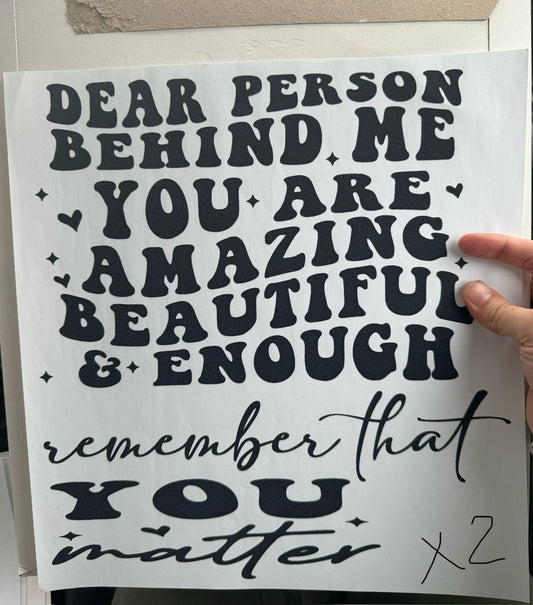 DEAR PERSON
BEHIND ME
YOU ARE
AMAZING
BEAUTIFUL
& ENOUGH
remember that
YOU
matter
x2